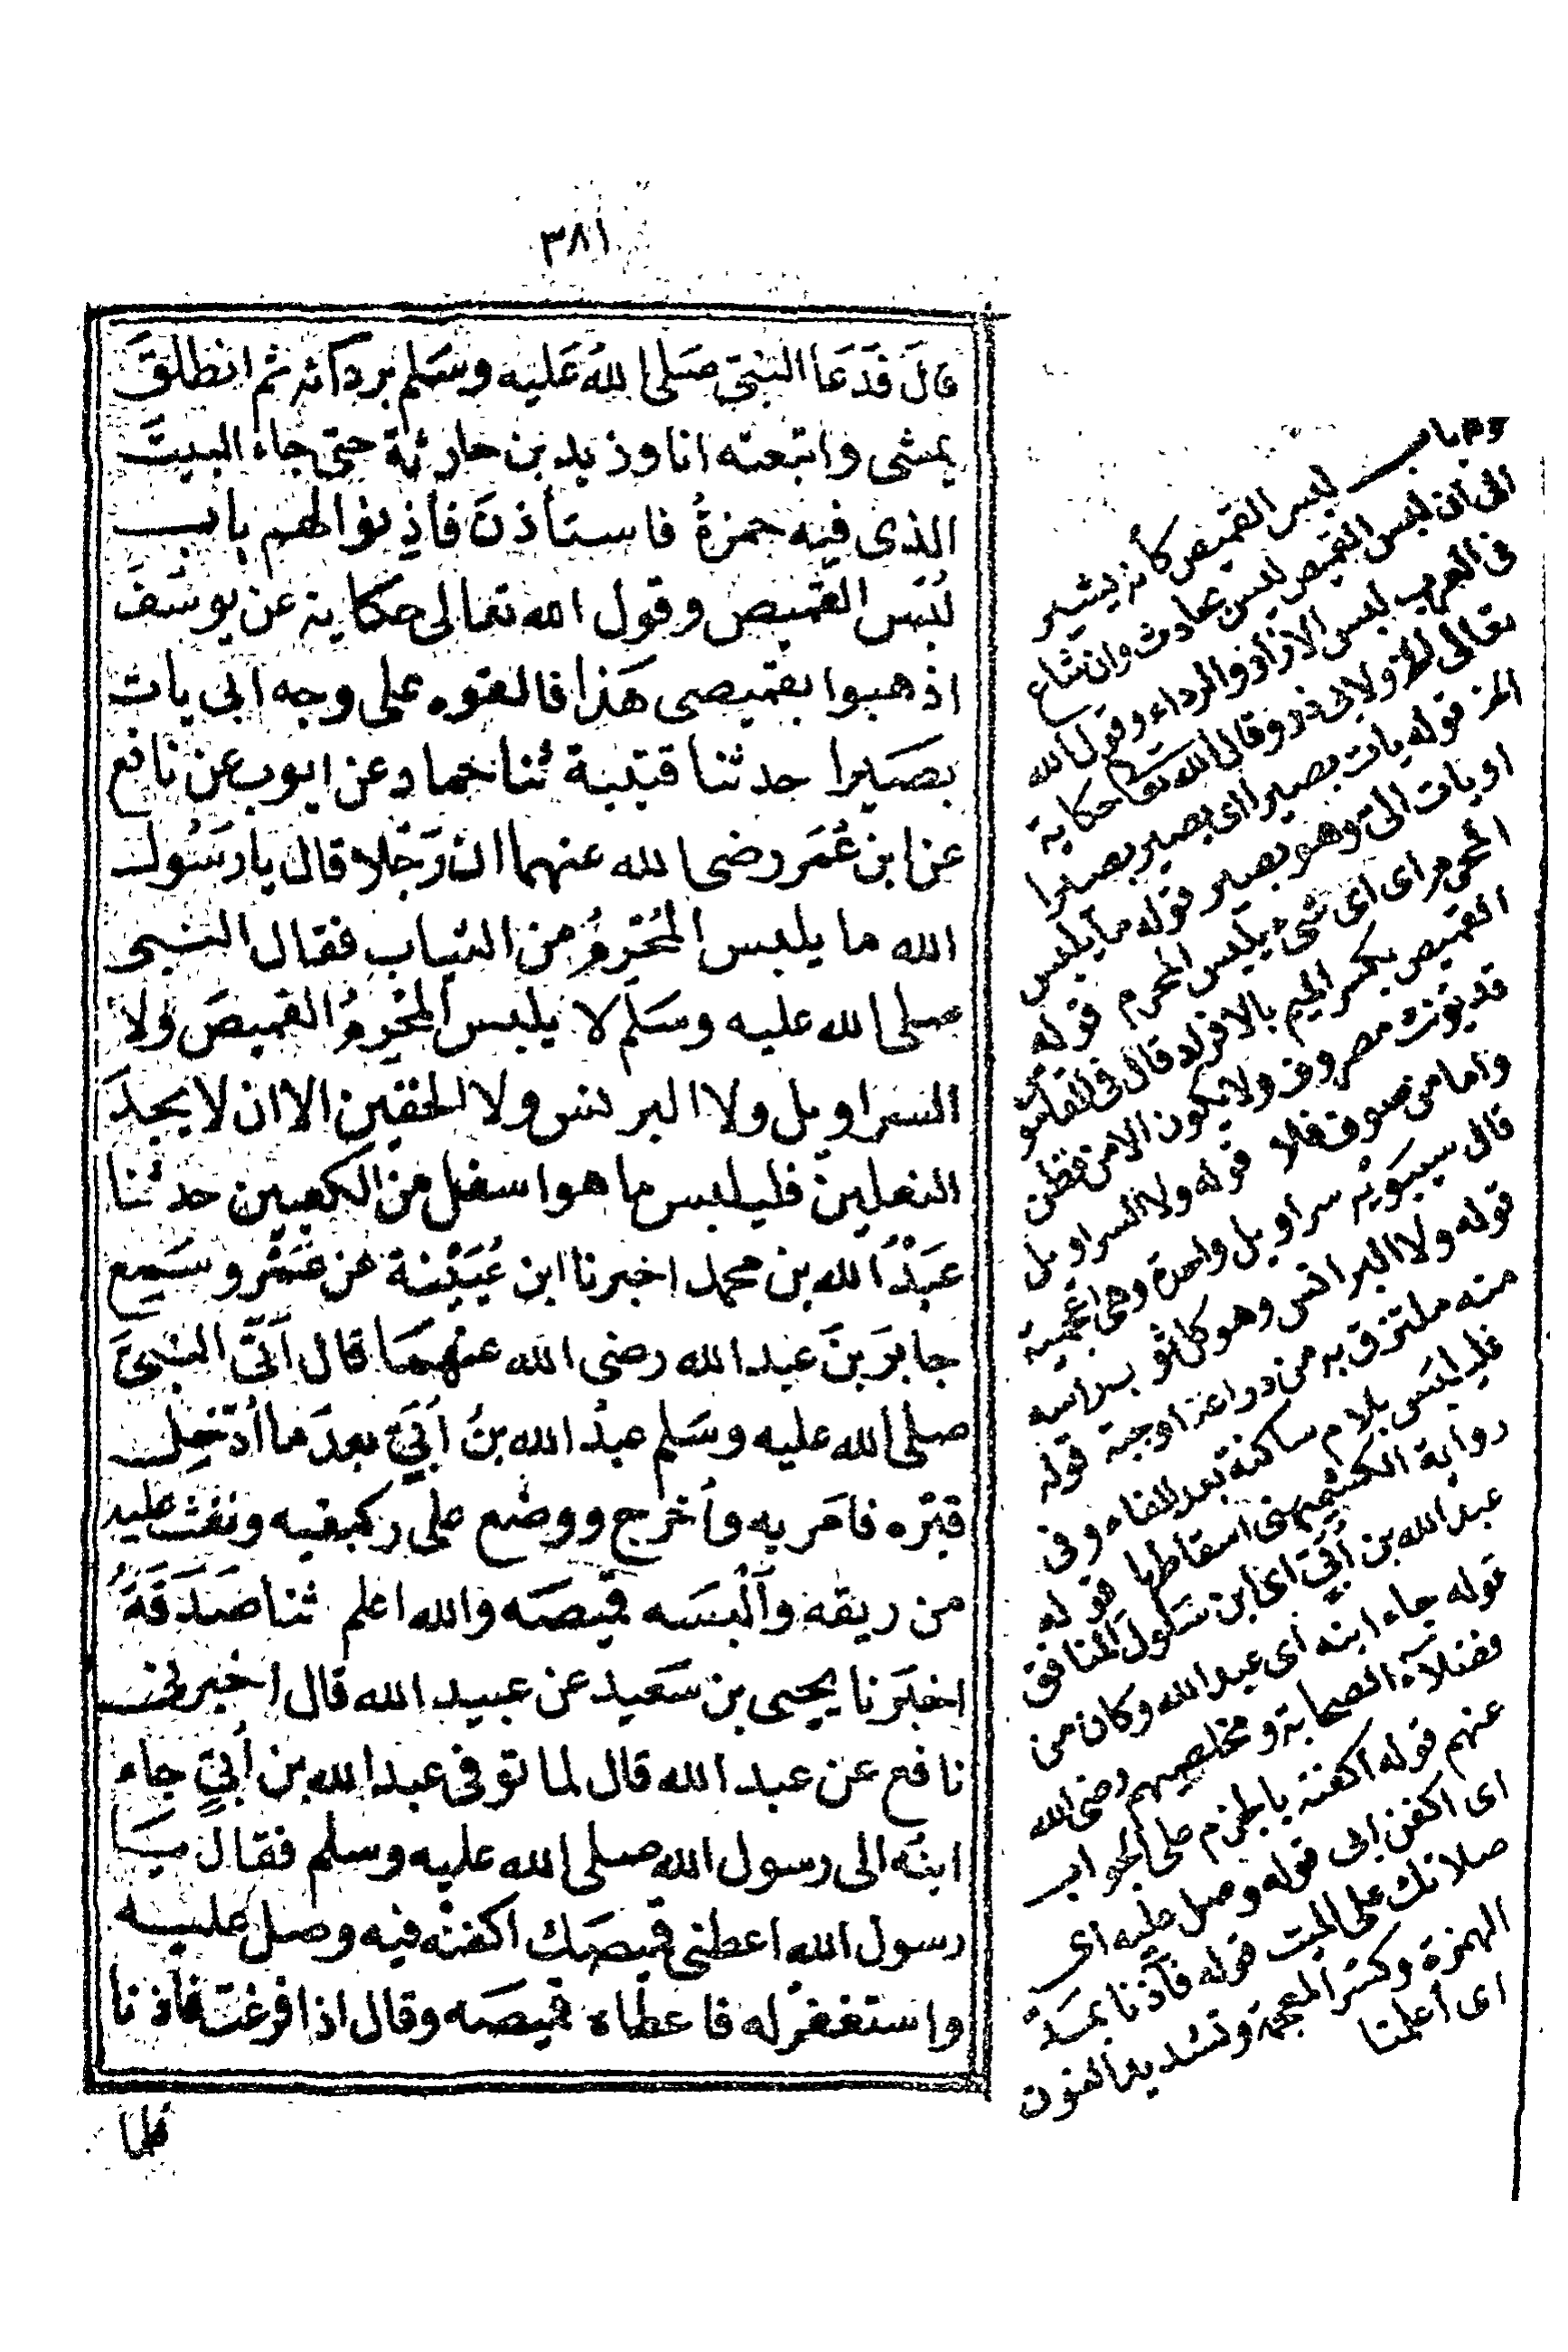 ٣٨١
قالَ فَدَعَا النبيّ صَلى اللهُ عَليه وسَلم بردائه ثم انطلقَ
يمشى واتبعته انا وزيد بن حارثة حتى جاء البيتَ
الذى فيه حمزةُ فاستأذنَ فأذِنوا لهم باب
لُبْس القميص وقول الله تعالى حكاية عن يوسُفَ
اذهبوا بقميصى هَذا فالقوه على وجه ابى يات
بصَيرا حدثنا قتيبة ثنا حماد عن ايوب عن نافع
عن ابن عُمَر رضى الله عنهما ان رَجُلا قال يا رسُول
الله ما يلبس المُحْرِمُ من الثياب فقال النبى
صلى الله عليه وسَلم لا يلبس المُحْرِمُ القميصَ ولا
السراويل ولا البرنس ولا الخفين الا ان لا يجدَ
النعلين فليلبس ما هو اسفل من الكعبين حدثنا
عَبْدُ الله بن محمد اخبرنا ابن عُيَيْنة عن عَمْرو سَمِع
جابرَ بنَ عبد الله رضى الله عنهمَا قال اَتَى النبىُّ
صلى الله عليه وسَلم عبدَ الله بنَ اُبَيّ بعدَ ما اُدْخِل
قبْره فامَر به وأُخرج ووضع على ركبتيه ونفث عليه
من ريقه وَاَلْبسَه قميصَه والله اعلم ثنا صَدَقَةُ
اخبَرنا يحيى بن سَعيد عن عبيد الله قال اخبرنى
نافع عن عبد الله قال لما توفى عبد الله بن اُبَيٍّ جاء
ابنُه الى رسول الله صلى الله عليه وسلم فقال يا
رسول الله اعطنى قميصَك اكفنْه فيه وصل عليه
واستغفرْ له فاعطاه قميصَه وقال اذا فرغتَ فآذنا
فلما
باب لبس القميص كأنه يشير
الى ان لبس القميص ليس بحادث وان شاع
فى العرب لبس الازار والرداء وقول الله
تعالى ولابى ذر وقال الله تعا حكاية
الخ قوله يات بصيرا اى يصير بصيرا
او يات الىّ وهو بصير قوله ما يلبس
المحرم اى اى شئ يلبس المحرم قوله
القميص بكسر الميم بالافراد قال فى القاموس
قد يؤنث معروف ولا يكون الا من قطن
واما من صوف فلا قوله ولا السراويل
قال سيبويه سراويل واحدة وهى اعجمية
قوله ولا البرانس وهو كل ثوب راسه
منه ملتزق به من دراعة او جبة قوله
فليلبس بلام ساكنة بعد الفاء وفى
رواية الكشميهنى اسقاطها قوله
عبد الله بن اُبَيّ اى ابن سَلول المنافق
قوله جاء ابنه اى عبد الله وكان من
فضلاء الصحابة ومخلصيهم رضى الله
عنهم قوله اكفنه بالجزم على الجواب
اى اكفن ابى قوله وصل عليه اى
صلاتك على الميت قوله فآذنا بمدّ
الهمزة وكسر المعجمة وتشديد النون
اى أعلمنا